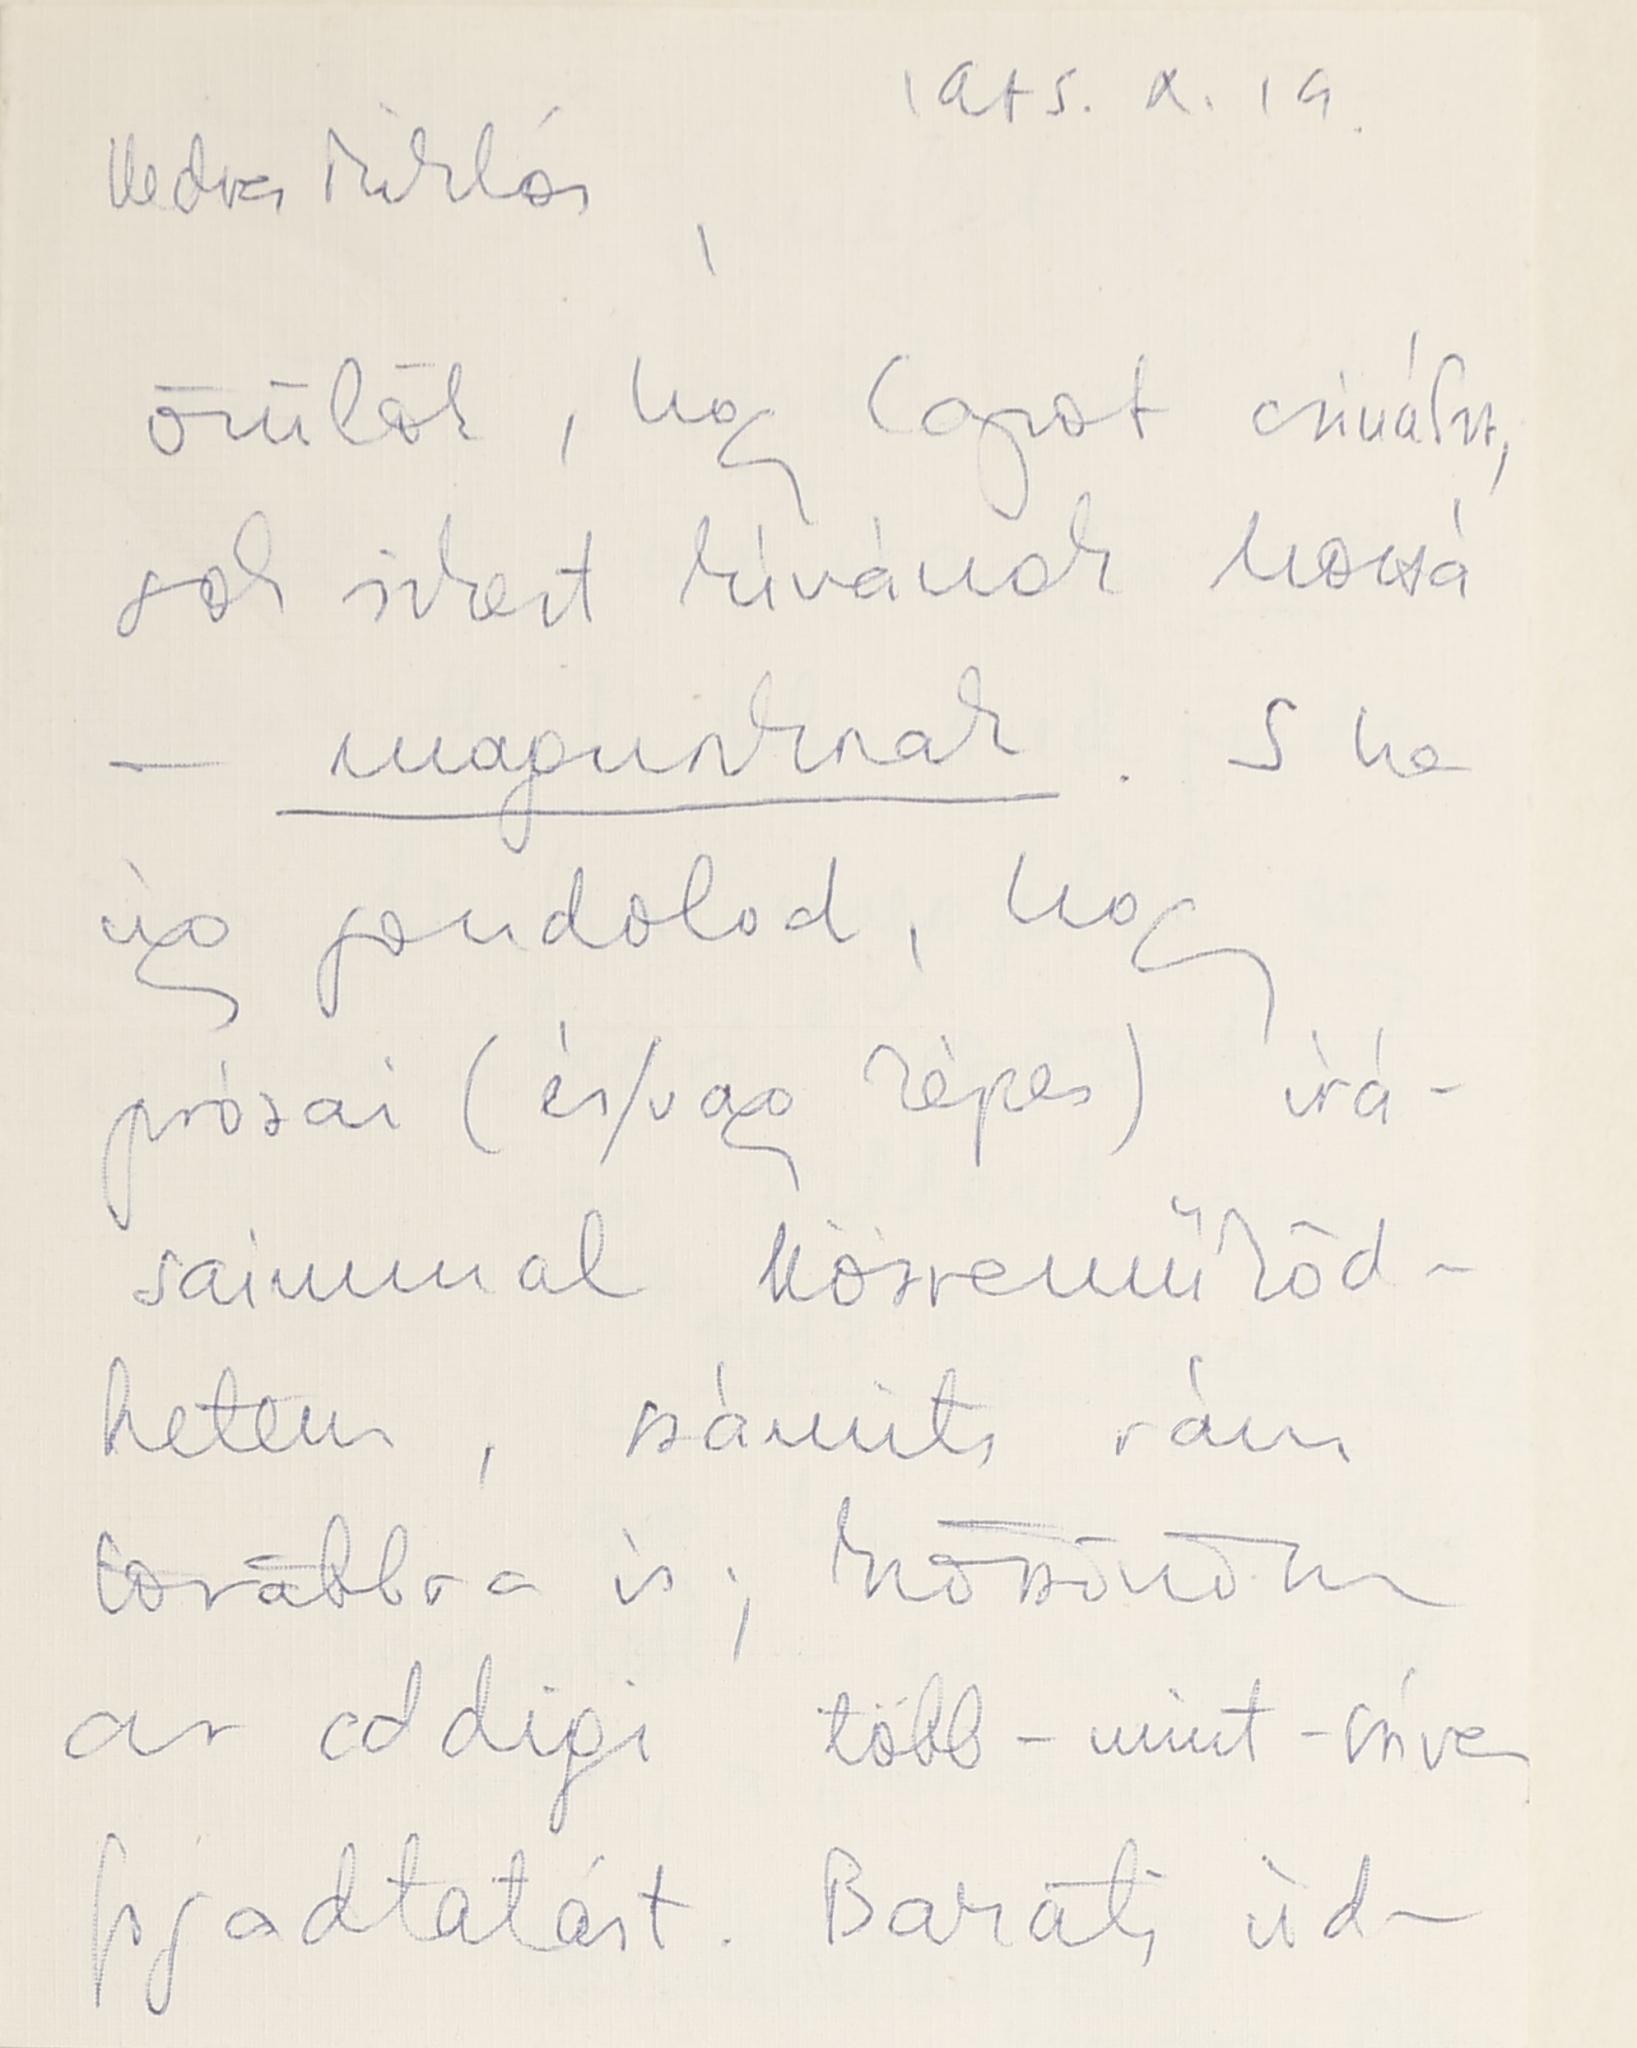 1975. X. 19.
Kedves Miklós,
örülök, hogy lapot csinálsz,
sok sikert kívánok hozzá
— magunknak. S ha
úgy gondolod, hogy
prózai (és/vagy képes) írá-
saimmal közreműköd-
hetem, számíts rám
továbbra is; köszönöm
az eddigi több-mint-szíves
fogadtatást. Baráti üd-